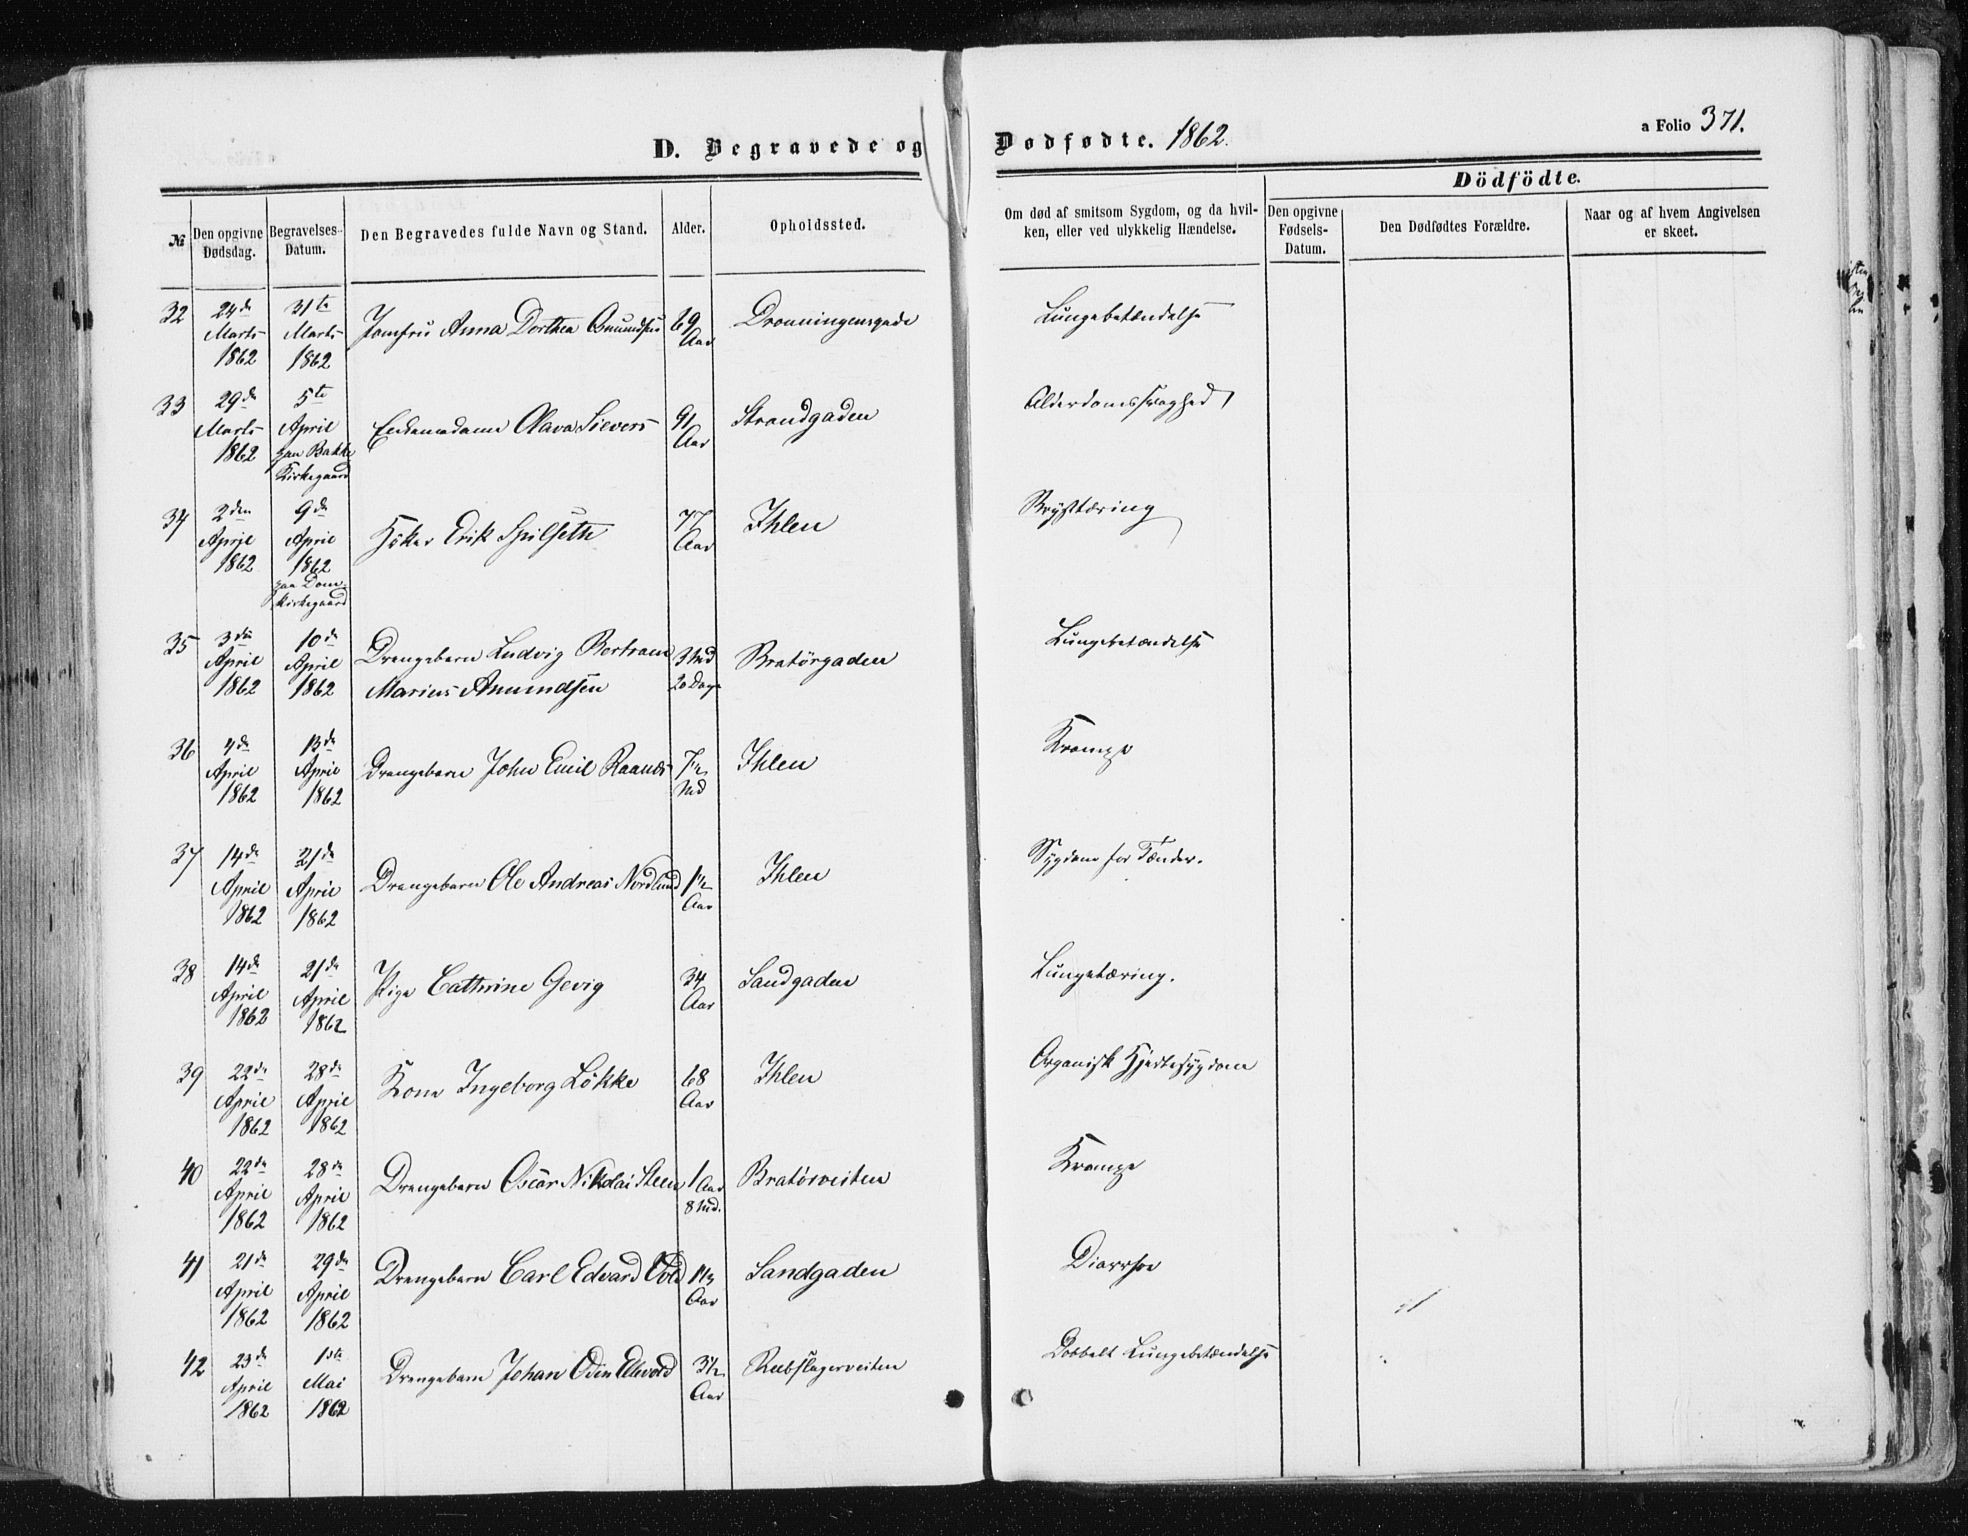 D. Begravede og Dodfodte. 1862. a Folio 371.
Dödfödte.
№ Den opgivne Dødsdag. Begravelses-Datum. Den Begravedes fulde Navn og Stand. Alder. Opholdssted. Om død af smitsom Sygdom, og da hvilken, eller ved ulykkelig Hændelse. Den opgivne Fødsels-Datum. Den Dødfødtes Forældre. Naar og af hvem Angivelsen er skeet.
32 24de Marts 1862 31te Marts 1862 Jomfru Anna Dorthea Amundsen 69 Aar Dronningensgade Lungebetændelse
33 29de Marts 1862 5te April paa Bakke Kirkegaard Enkemadame Olava Sievers 91 Aar Strandgaden Alderdomssvaghed
34 2den April 1862 9de April 1862 paa Dom-kirkegaard Höker Erik Spilseth 77 Aar Ihlen Brysttæring
35 3die April 1862 10de April 1862 Drengebarn Ludvig Bertram Marius Amundsen 3 Md 20 Dage Bratörgaden Lungebetændelse
36 4de April 1862 13de April 1862 Drengebarn John Emil Raanes 7 1/2 Md Ihlen Krampe
37 14de April 1862 21de April 1862 Drengebarn Ole Andreas Nordlund 1 1/2 Aar Ihlen Sygdom for Tænder.
38 14de April 1862 21de April 1862 Pige Cathrine Gevig 34 Aar Sandgaden Lungetæring.
39 22de April 1862 28de April 1862 Kone Ingeborg Lökke 68 Aar Ihlen Organisk Hjertesygdom
40 22de April 1862 28de April 1862 Drengebarn Oscar Nikolai Steen 1 Aar 8 Md. Bratörveiten Krampe
41 21de April 1862 29de April 1862 Drengebarn Carl Edvard Vold 1 1/2 Aar Sandgaden Diarrhoe
42 23de April 1862 1ste Mai 1862 Drengebarn Johan Odin Ellevold 3 1/2 Aar Rebslagerveiten Dobbelt Lungebetændelse